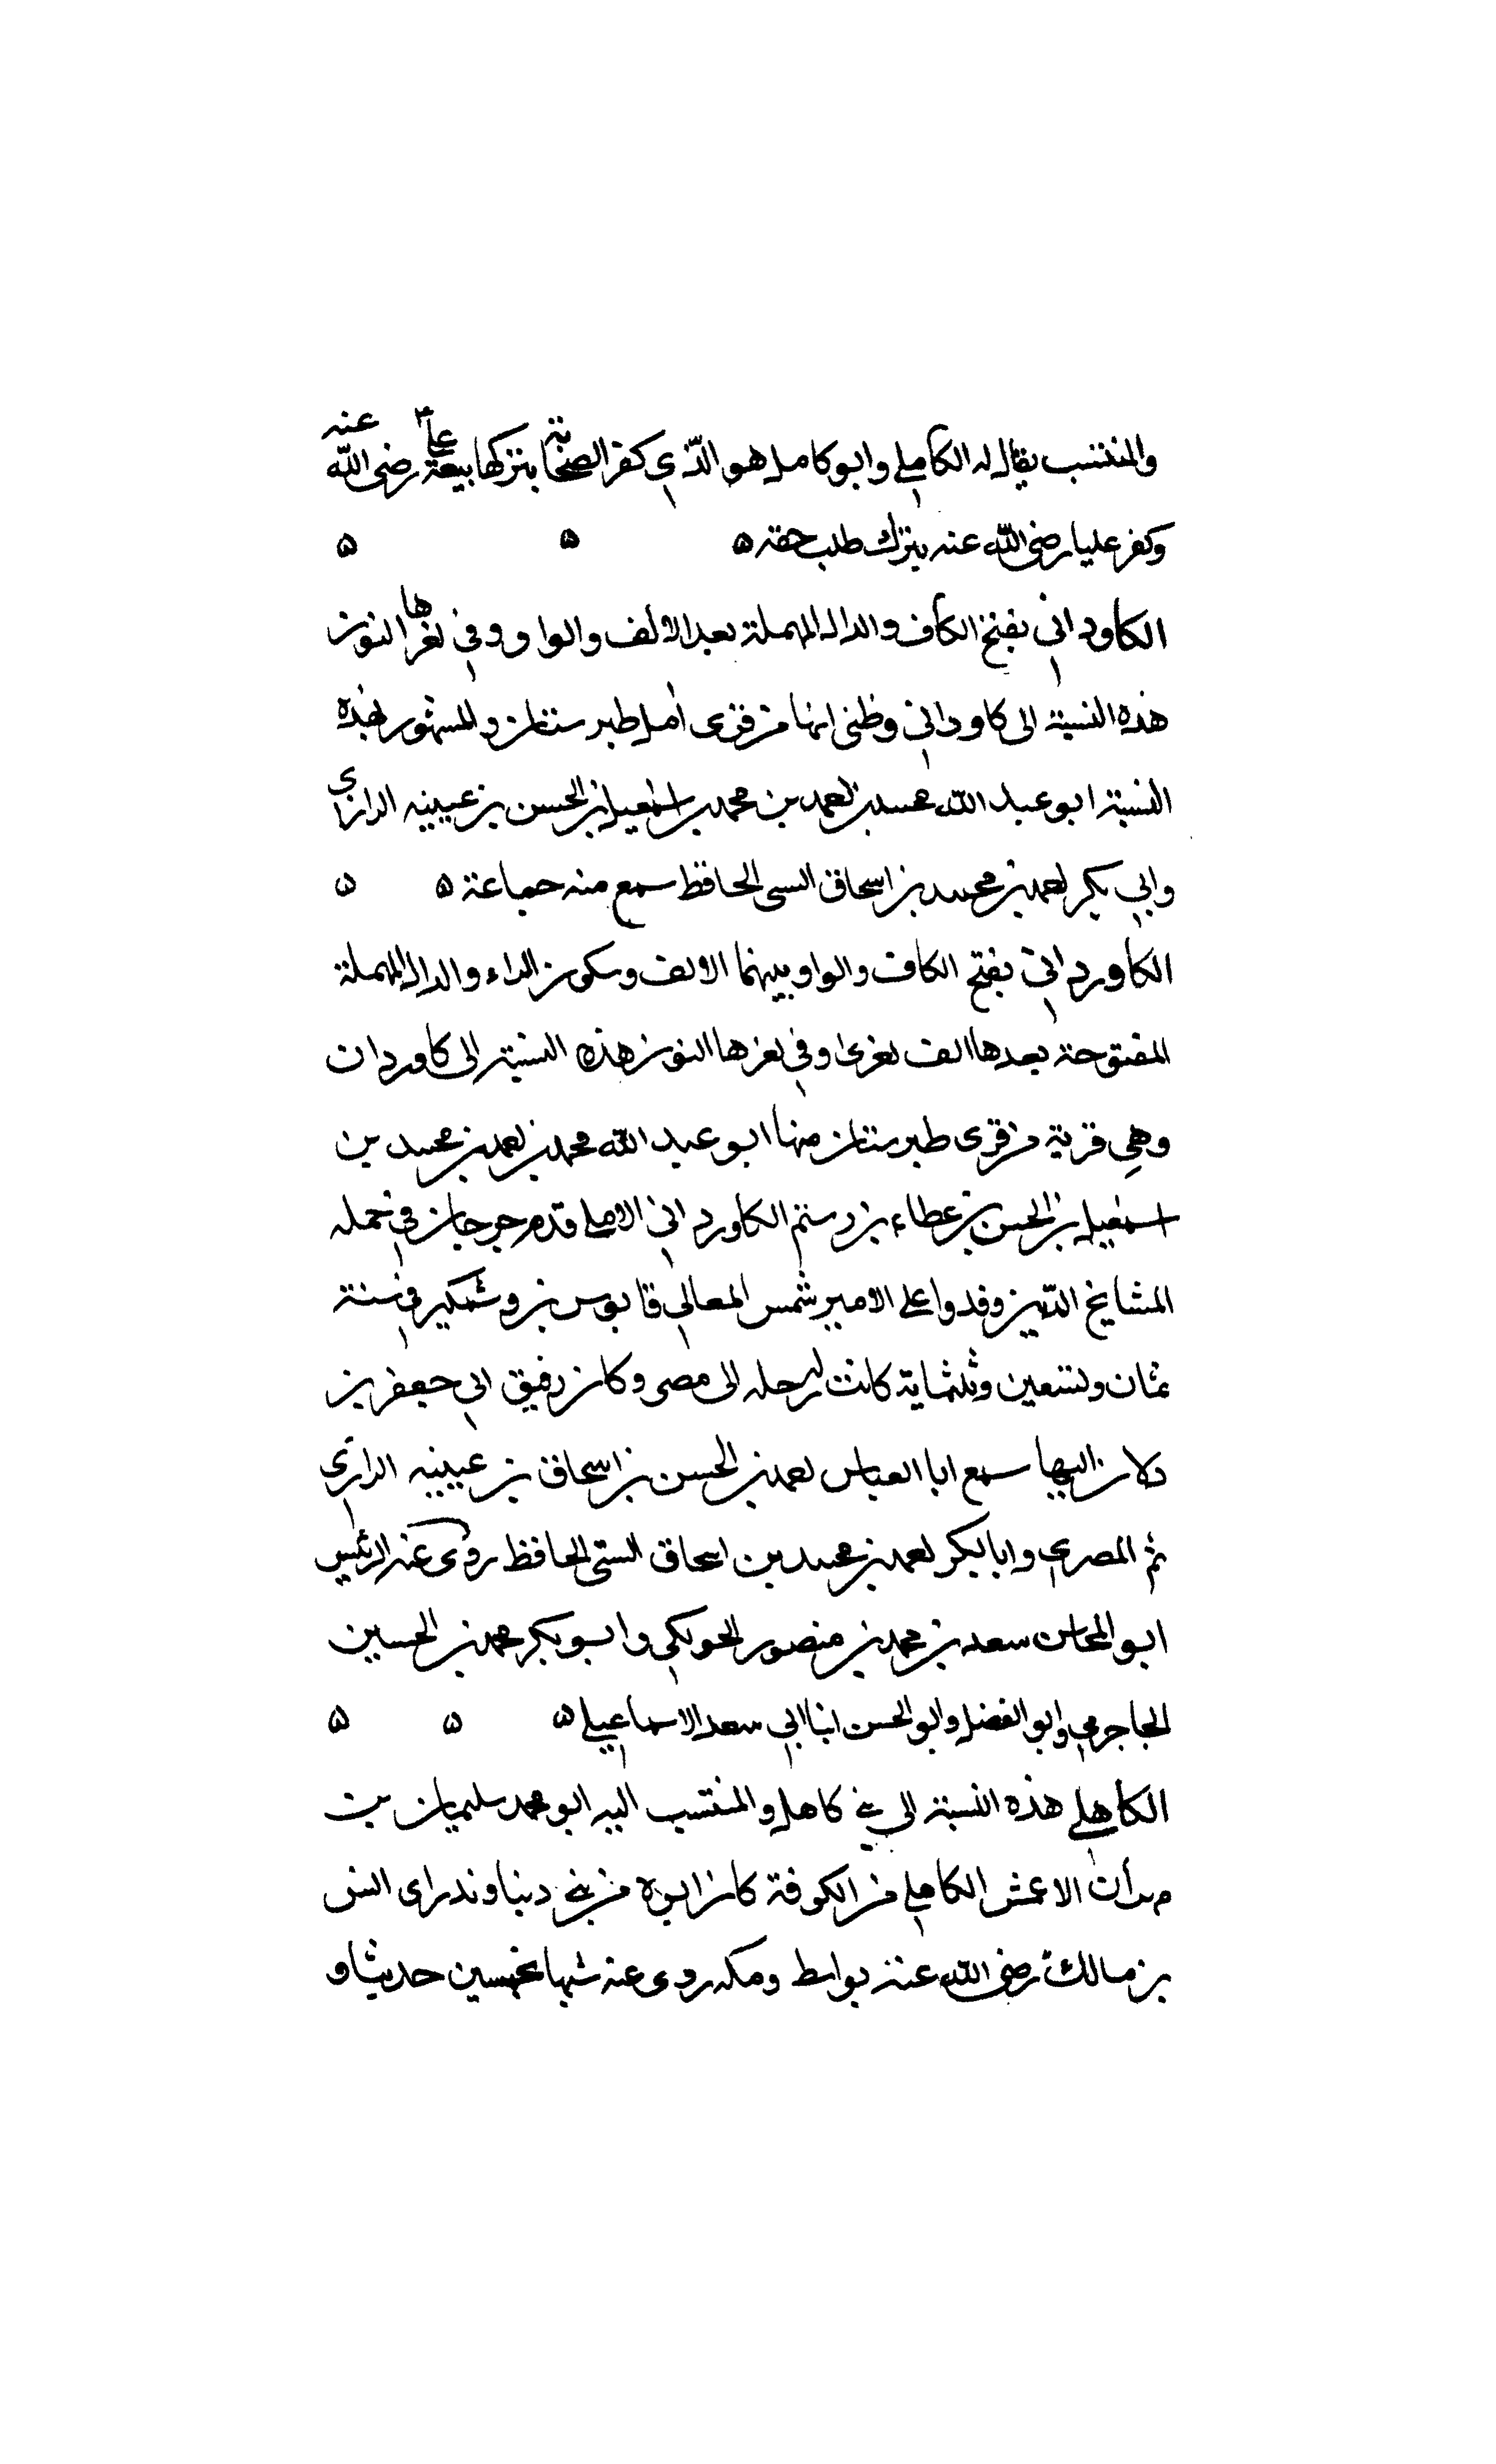 والمنتسب يقال له الكاملي وابو كامل هو الذي كفر الصحابة بتركها بيعة علي رضى الله عنه
وكفر عليا رضى الله عنه بترك طلب حقه ه ه ه
الكاوداني بفتح الكاف والدال المهملة بعد الالف والواو وفي اخرها النون
هذه النسبة الى كاوداني وظنى انها من قرى امل طبرستان والمشهور بهذه
النسبة ابو عبد الله محمد بن احمد بن محمد بن اسمعيل بن الحسن بن عيينه الرازي
وابي بكر احمد بن محمد بن اسحاق السى الحافظ سمع منه جماعة ه ه
الكاورداني بفتح الكاف والواو بينهما الالف وسكون الراء والدال المهملة
المفتوحة بعدها الف اخرى وفي اخرها النون هذه النسبة الى كاوردان
وهي قرية من قرى طبرستان منها ابو عبد الله محمد بن احمد بن محمد بن
اسمعيل بن الحسن بن عطاء بن رستم الكاورداني الاملي قدم جرجان في جمله
المشايخ الذين وفدوا على الامير شمس المعالي قابوس بن وشمكير في سنة
ثمان وتسعين وثلثماية كانت له رحله الى مصر وكان رفيق ابي جعفر بن
دلان اليها سمع ابا العباس احمد بن الحسن بن اسحاق بن عيينه الرازي
ثم المصري وابا بكر احمد بن محمد بن اسحاق السنى الحافظ روى عنه الرئيس
ابو المحاسن سعد بن محمد بن منصور الجولكي وابو بكر محمد بن الحسين
الجاجرمي وابو الفضل وابو الحسن ابنا ابي سعد الاسماعيلي ه ه ه
الكاهلي هذه النسبة الى بني كاهل والمنتسب اليه ابو محمد سليمان بن
مهران الاعمش الكاهلي من الكوفة كان ابوه من دنباوند راى انس
بن مالك رضى الله عنه بواسط ومكه روى عنه شبها بخمسين حديثا و